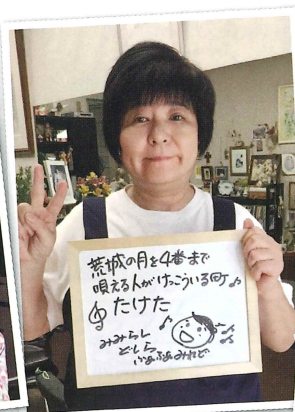 荒城の月を4番まで
唄える人がけっこういる町♪
たけた
みみらし
どしら
ふぁふぁみれど